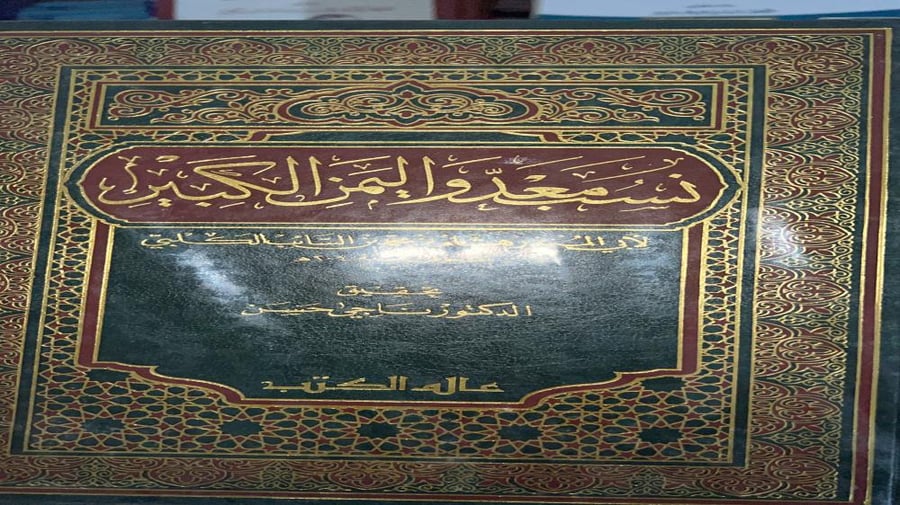 نسب معد واليمن الكبير
لأبي المنذر هشام بن محمد بن السائب الكلبي
تحقيق
الدكتور ناجي حسن
عالم الكتب